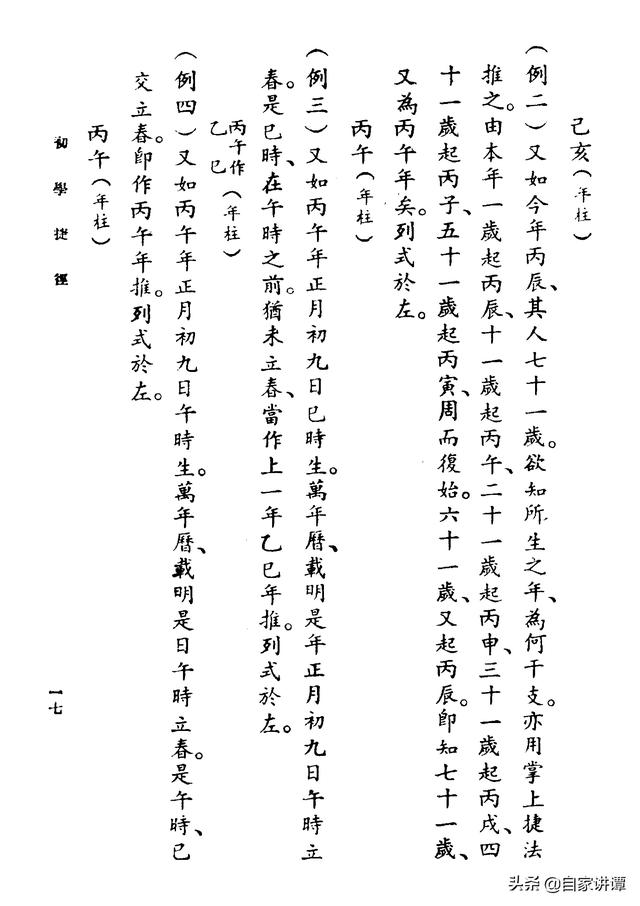 己亥(年柱)
(例二)又如今年丙辰、其人七十一歲。欲知所生之年、為何干支。亦用掌上捷法
推之。由本年一歲起丙辰、十一歲起丙午、二十一歲起丙申、三十一歲起丙戌、四
十一歲起丙子、五十一歲起丙寅、周而復始。六十一歲、又起丙辰。即知七十一歲、
又為丙午年矣。列式於左。
丙午(年柱)
(例三)又如丙午年正月初九日巳時生。萬年曆、載明是年正月初九日午時立
春。是巳時、在午時之前。猶未立春、當作上一年乙巳年推。列式於左。
丙午作
乙巳
(年柱)
(例四)又如丙午年正月初九日午時生。萬年曆、載明是日午時立春。是午時、已
交立春。即作丙午年推。列式於左。
丙午(年柱)
初學捷徑
一七
头条 @自家讲谭